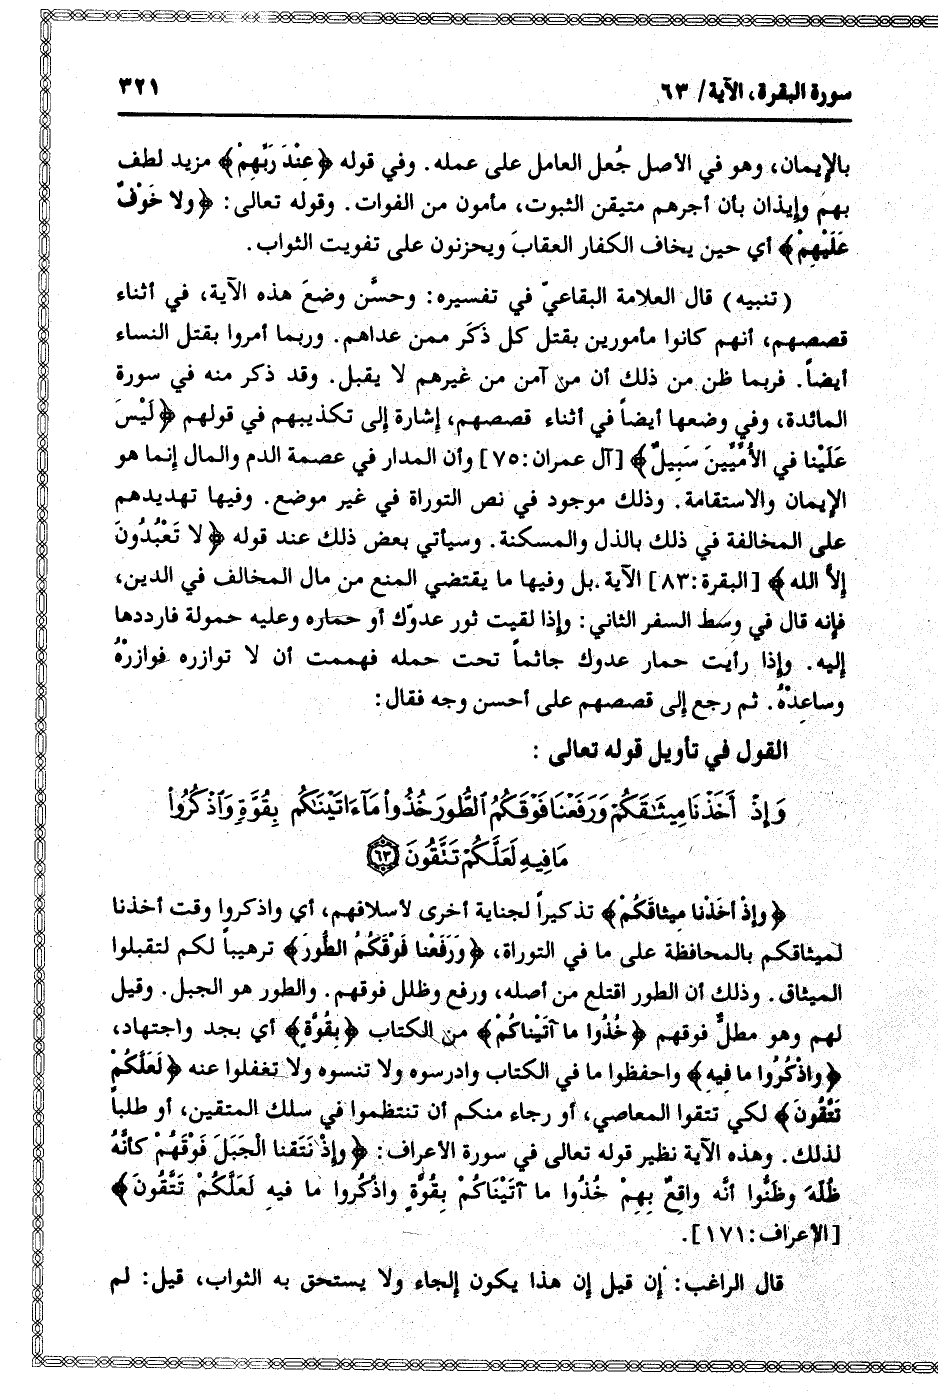 سورة البقرة، الآية/ ٦٣
٣٢١
بالإيمان، وهو في الأصل جُعل العامل على عمله. وفي قوله ﴿عِنْدَ رَبِّهِمْ﴾ مزيد لطف
بهم وإيذان بأن أجرهم متيقن الثبوت، مأمون من الفوات. وقوله تعالى: ﴿ولا خَوْفٌ
عَلَيْهِمْ﴾ أي حين يخاف الكفار العقابَ ويحزنون على تفويت الثواب.
(تنبيه) قال العلامة البقاعيّ في تفسيره: وحسَّن وضعَ هذه الآية، في أثناء
قصصهم، أنهم كانوا مأمورين بقتل كل ذَكَر ممن عداهم. وربما أمروا بقتل النساء
أيضاً. فربما ظن من ذلك أن من آمن من غيرهم لا يقبل. وقد ذكر منه في سورة
المائدة، وفي وضعها أيضاً في أثناء قصصهم، إشارة إلى تكذيبهم في قولهم ﴿لَيْسَ
عَلَيْنا في الأُمِّيِّينَ سَبِيلٌ﴾ [آل عمران:٧٥] وأن المدار في عصمة الدم والمال إنما هو
الإيمان والاستقامة. وذلك موجود في نص التوراة في غير موضع. وفيها تهديدهم
على المخالفة في ذلك بالذل والمسكنة. وسيأتي بعض ذلك عند قوله ﴿لا تَعْبُدُونَ
إلاَّ الله﴾ [البقرة:٨٣] الآية.بل وفيها ما يقتضي المنع من مال المخالف في الدين،
فإنه قال في وسط السفر الثاني: وإذا لقيت ثور عدوّك أو حماره وعليه حمولة فارددها
إليه. وإذا رأيت حمار عدوك جاثماً تحت حمله فهممت أن لا توازره فوازرْهُ
وساعدْهُ. ثم رجع إلى قصصهم على أحسن وجه فقال:
القول في تأويل قوله تعالى :
وَإِذْ أَخَذْنَا مِيثَٰقَكُمْ وَرَفَعْنَا فَوْقَكُمُ ٱلطُّورَ خُذُوا۟ مَآ ءَاتَيْنَٰكُم بِقُوَّةٍ وَٱذْكُرُوا۟
مَا فِيهِ لَعَلَّكُمْ تَتَّقُونَ ۝٦٣
﴿وإذْ أخَذْنا مِيثاقَكُمْ﴾ تذكيراً لجناية أخرى لأسلافهم، أي واذكروا وقت أخذنا
لميثاقكم بالمحافظة على ما في التوراة، ﴿وَرَفَعْنا فَوْقَكُمُ الطُّورَ﴾ ترهيباً لكم لتقبلوا
الميثاق. وذلك أن الطور اقتلع من أصله، ورفع وظلل فوقهم. والطور هو الجبل. وقيل
لهم وهو مطلٌّ فوقهم ﴿خُذُوا ما آتَيْناكُمْ﴾ من الكتاب ﴿بِقُوَّةٍ﴾ أي بجد واجتهاد،
﴿واذْكُرُوا ما فِيهِ﴾ واحفظوا ما في الكتاب وادرسوه ولا تنسوه ولا تغفلوا عنه ﴿لَعَلَّكُمْ
تَتَّقُونَ﴾ لكي تتقوا المعاصي، أو رجاء منكم أن تنتظموا في سلك المتقين، أو طلباً
لذلك. وهذه الآية نظير قوله تعالى في سورة الأعراف: ﴿وإذْ نَتَقنا الْجَبَلَ فَوْقَهُمْ كأنَّهُ
ظُلَّةَ وظَنُّوا أنَّه واقعٌ بِهِمْ خُذُوا ما آتَيْنَاكُمْ بِقُوَّةٍ واذْكُروا ما فيهِ لَعَلَّكُمْ تَتَّقُونَ﴾
[الأعراف:١٧١].
قال الراغب: إن قيل إن هذا يكون إلجاء ولا يستحق به الثواب، قيل: لم